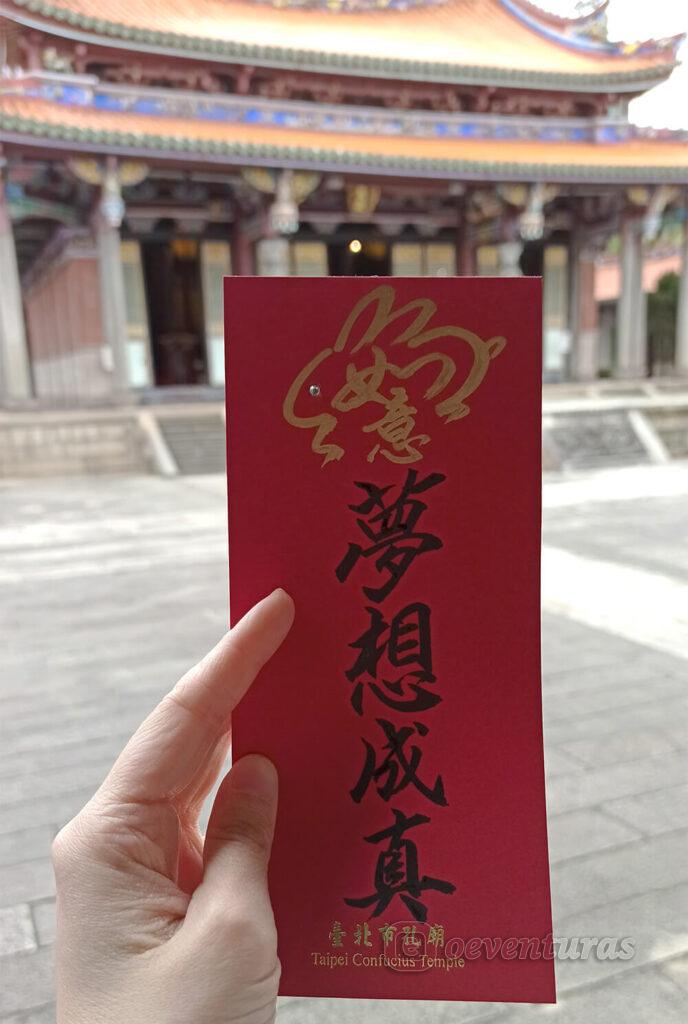 如意
夢想成真
臺北市孔廟
Taipei Confucius Temple
oeventuras